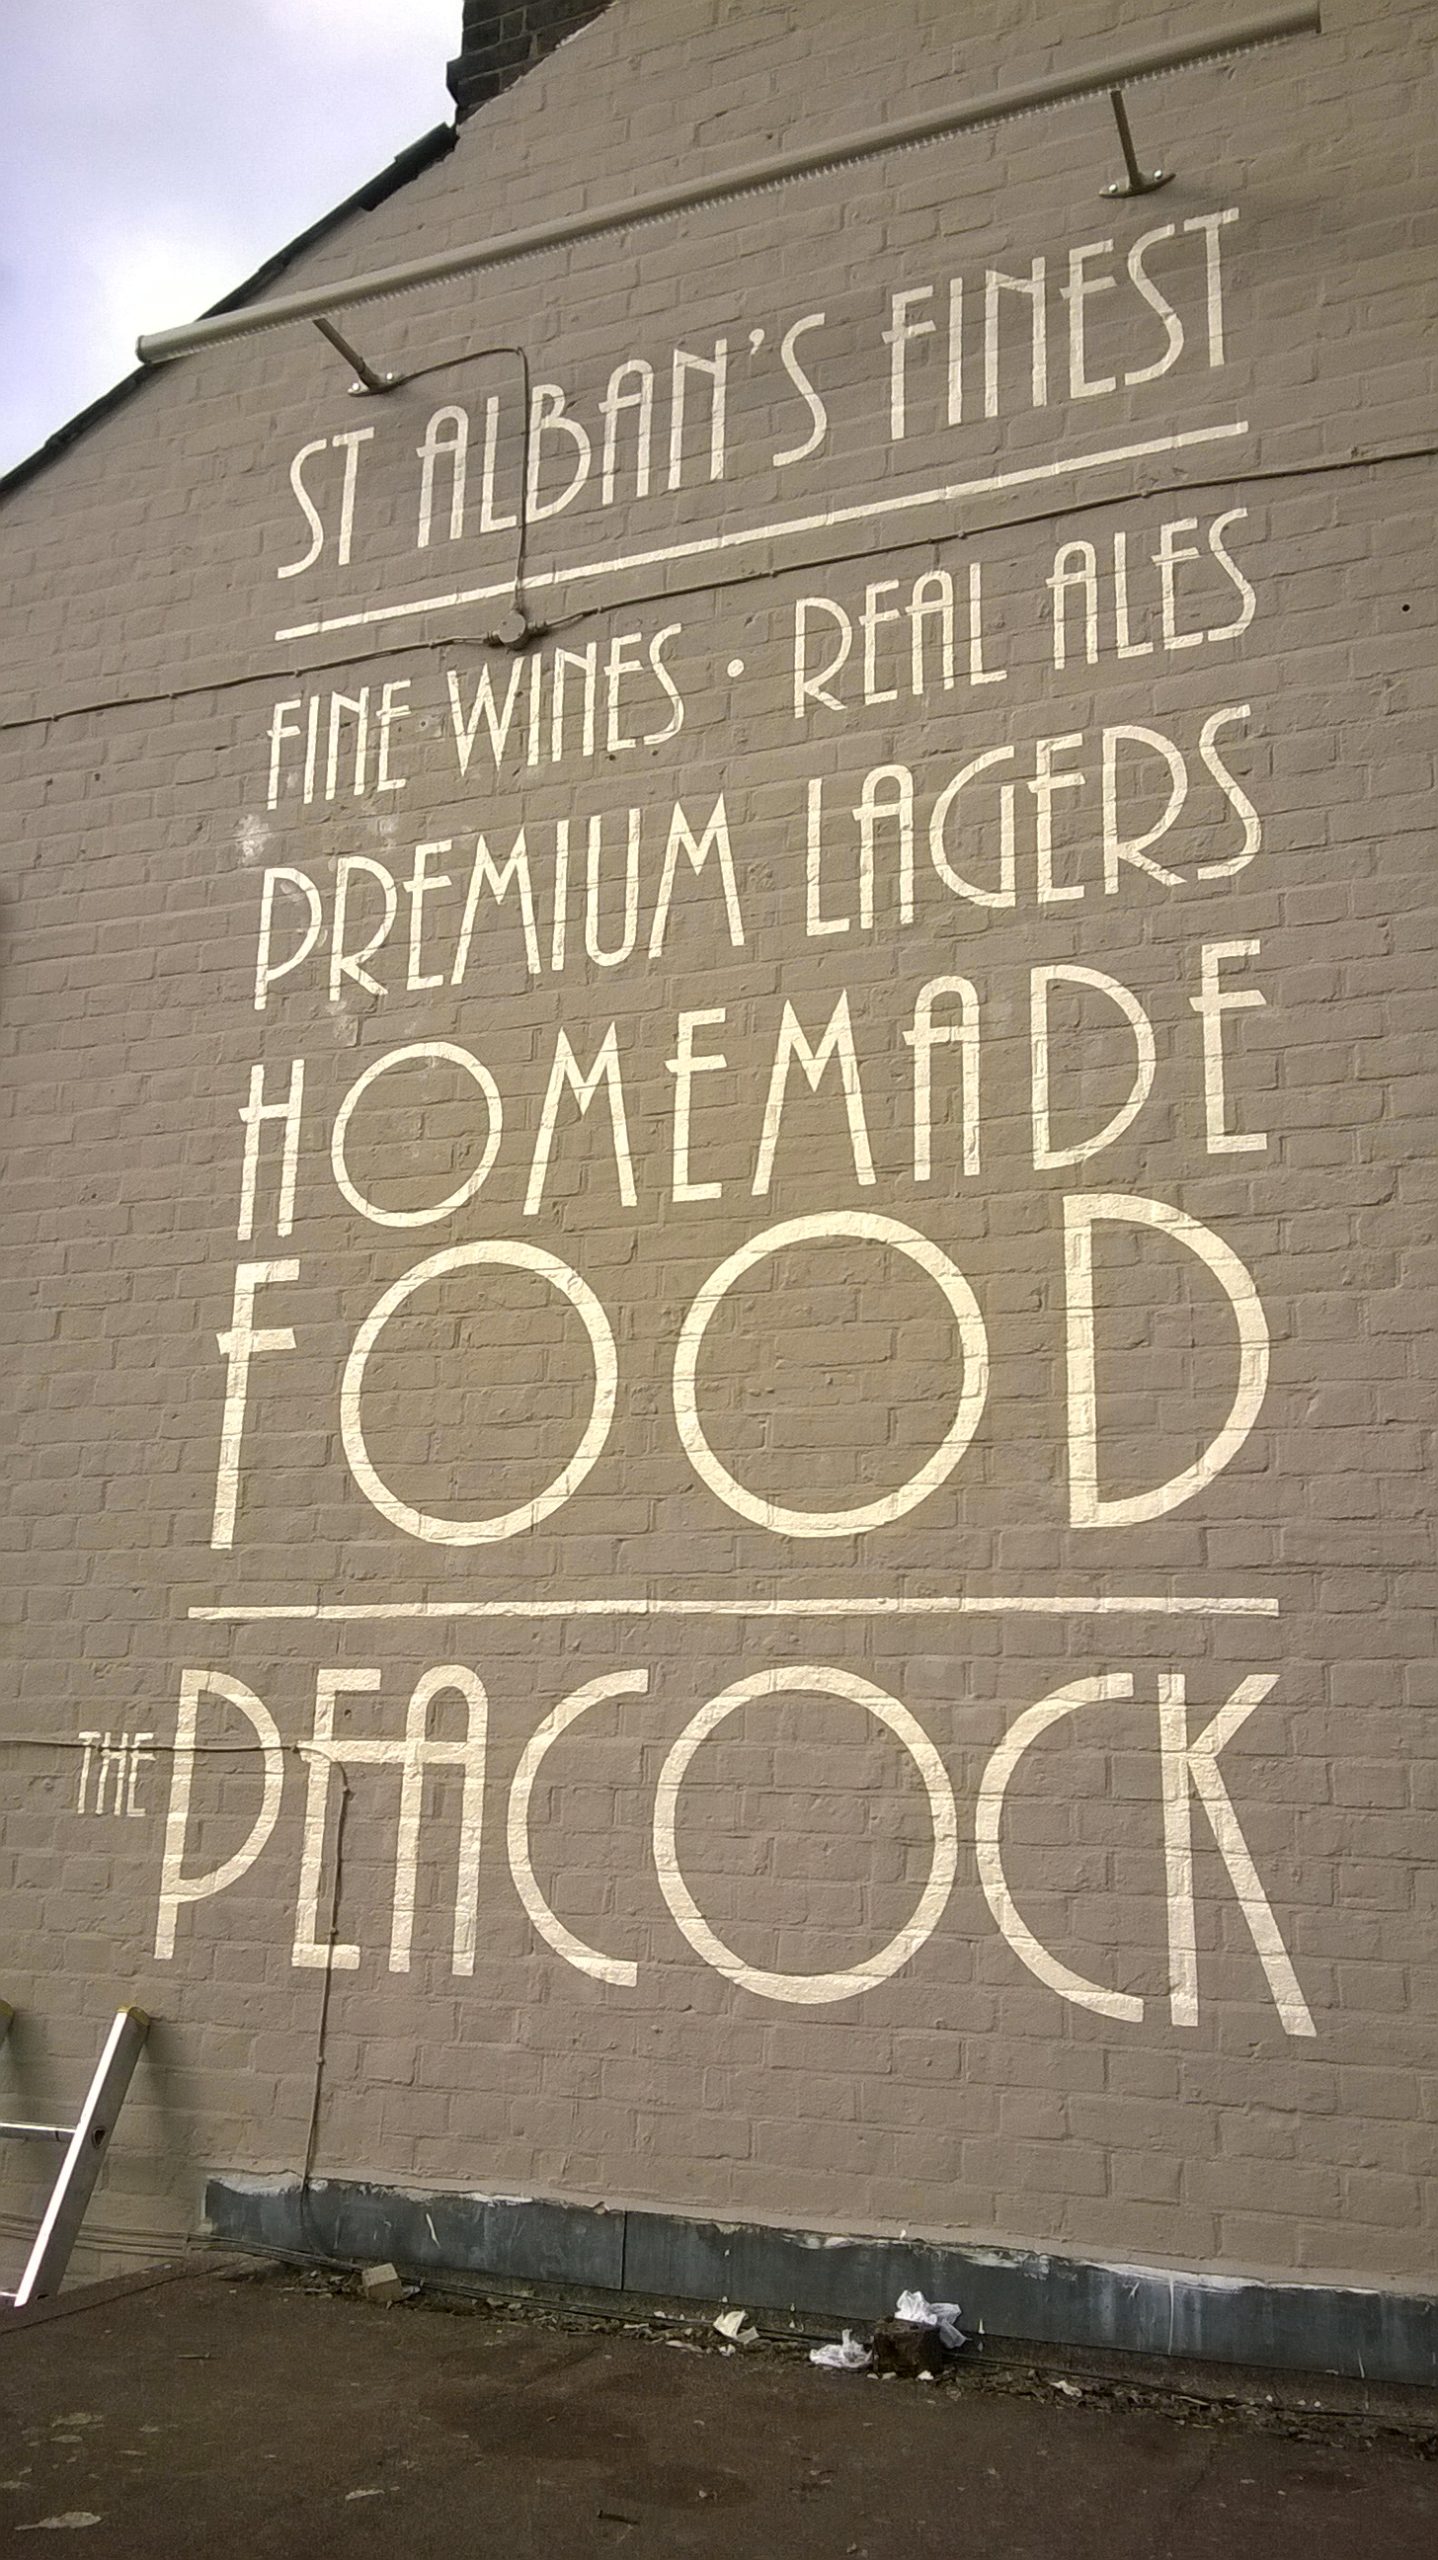 ST ALBAN'S FINEST
FINE WINES · REAL ALES
PREMIUM LAGERS
HOMEMADE
FOOD
THE PEACOCK